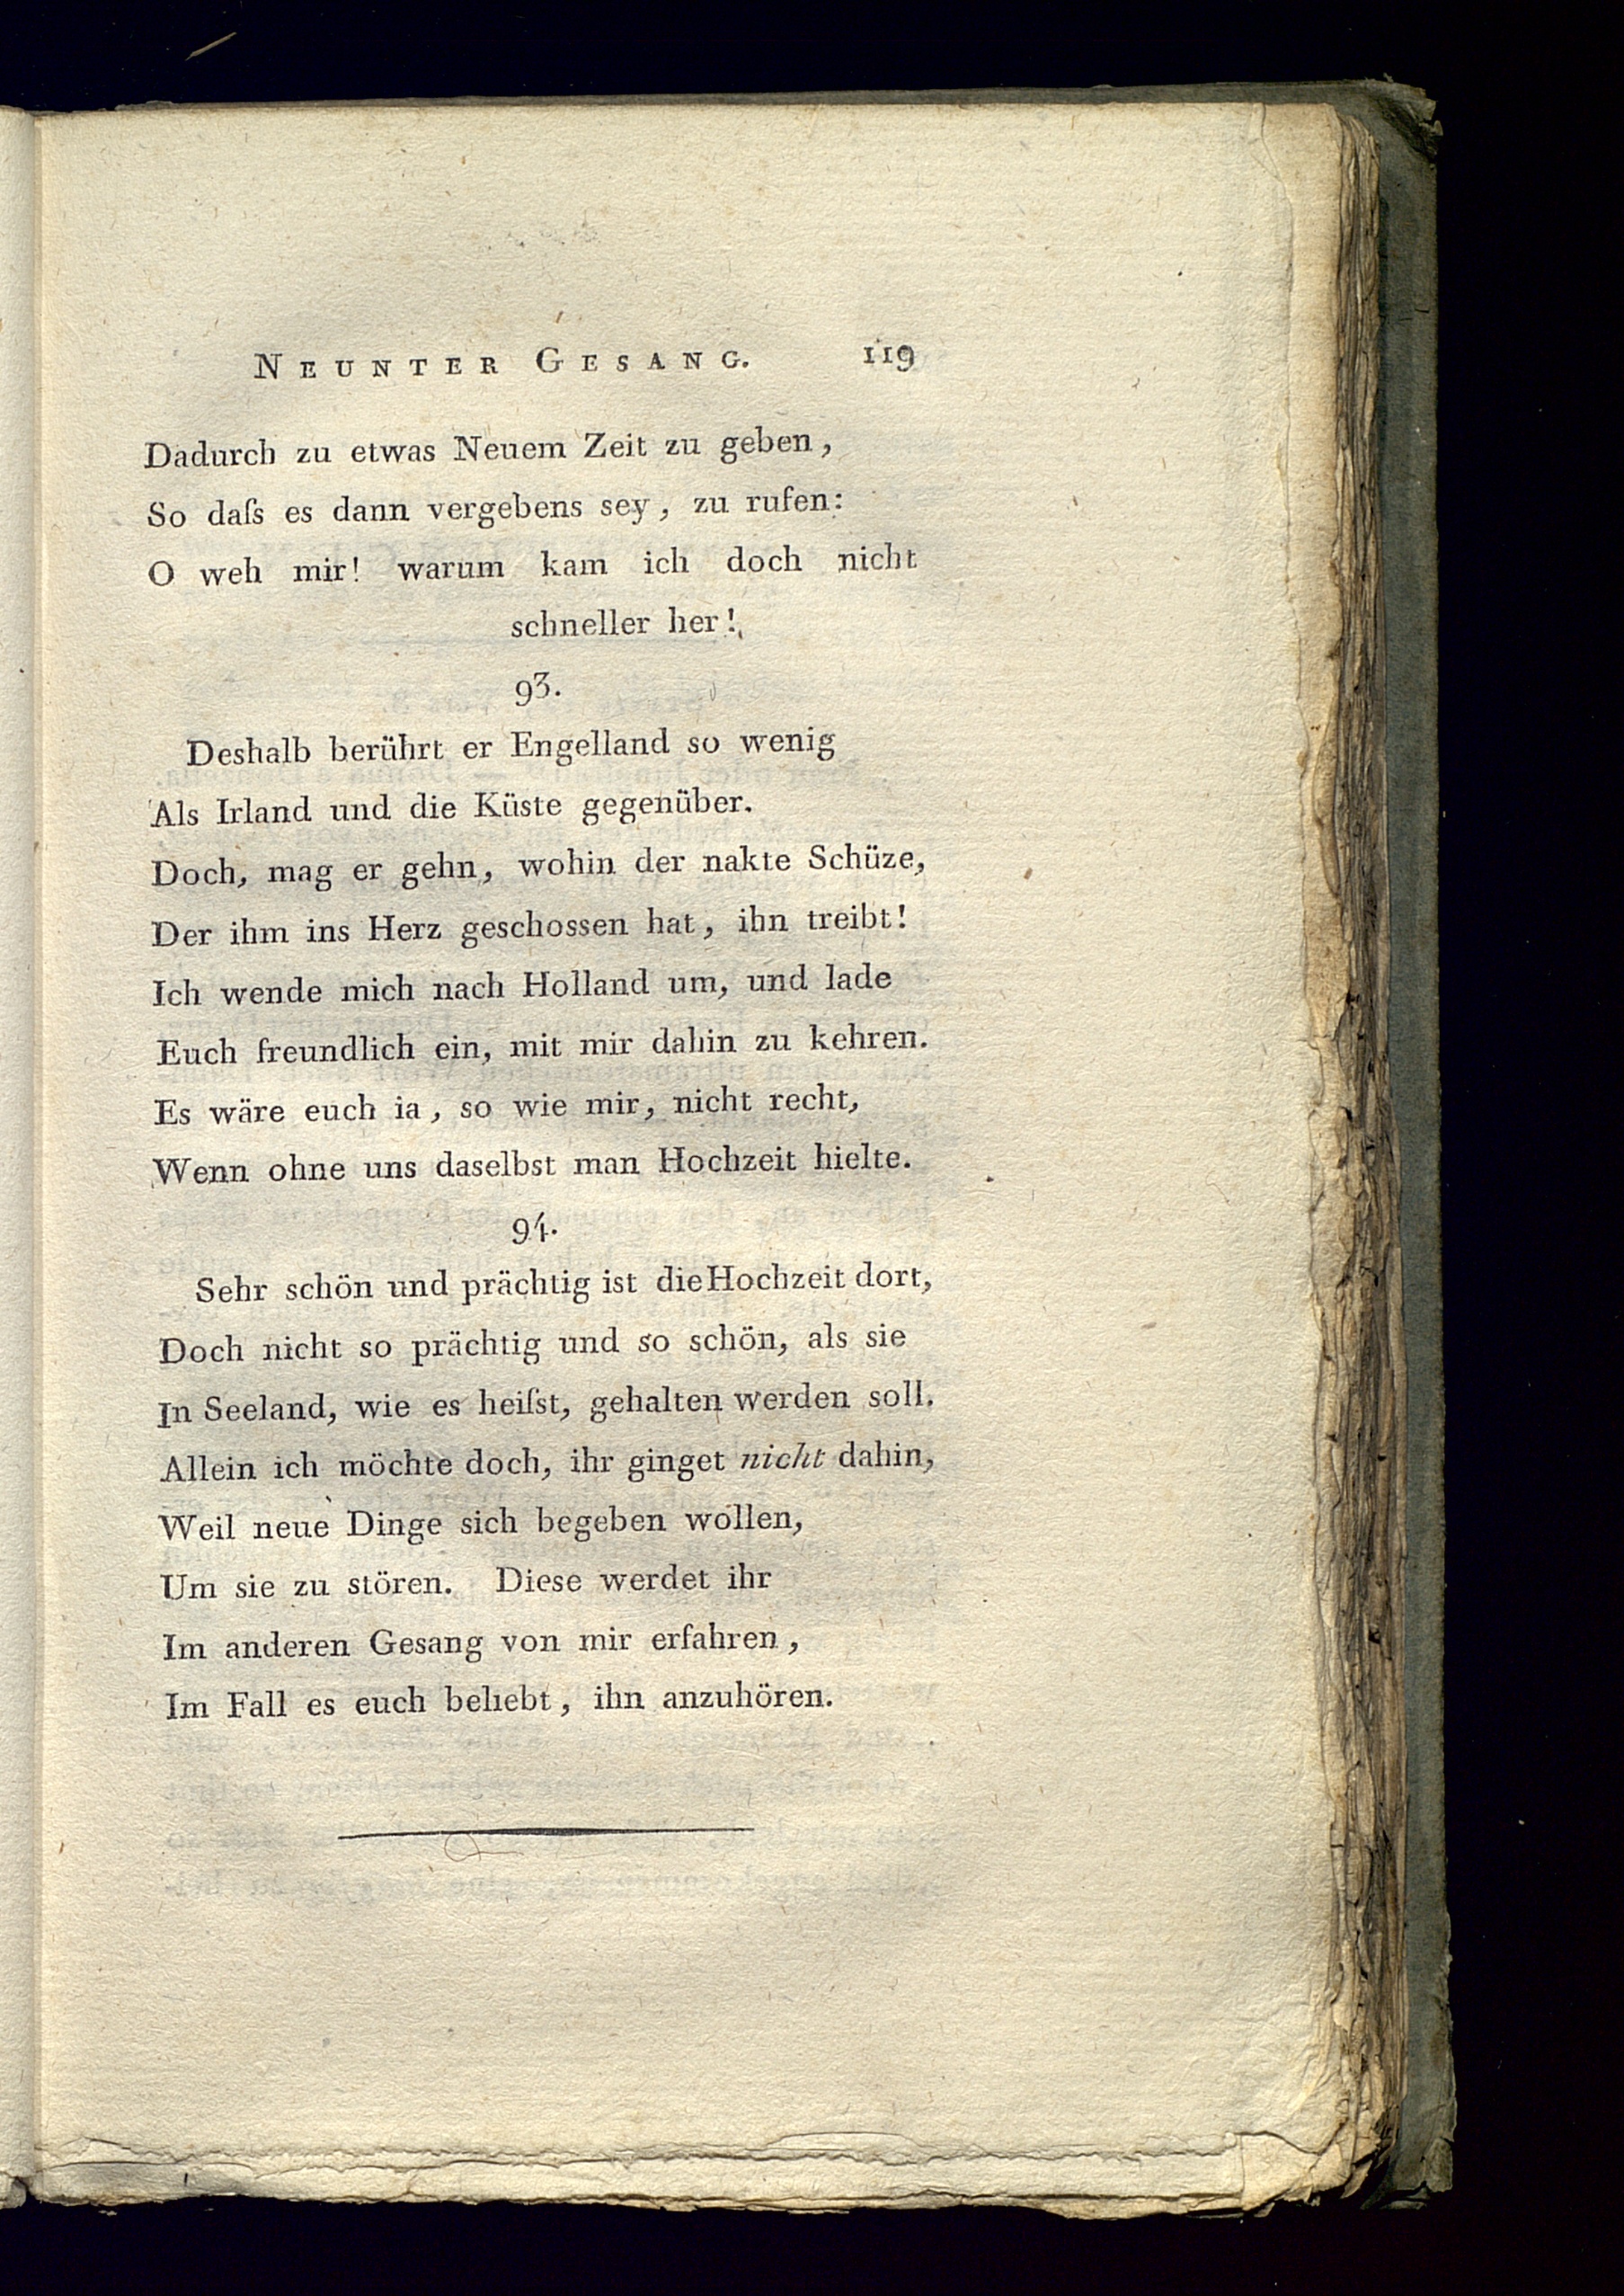 NEUNTER GESANG. 119
Dadurch zu etwas Neuem Zeit zu geben,
So daſs es dann vergebens sey, zu rufen:
O weh mir! warum kam ich doch nicht
schneller her!
93.
Deshalb berührt er Engelland so wenig
Als Irland und die Küste gegenüber.
Doch, mag er gehn, wohin der nakte Schüze,
Der ihm ins Herz geschossen hat, ihn treibt!
Ich wende mich nach Holland um, und lade
Euch freundlich ein, mit mir dahin zu kehren.
Es wäre euch ia, so wie mir, nicht recht,
Wenn ohne uns daselbst man Hochzeit hielte.
94.
Sehr schön und prächtig ist die Hochzeit dort,
Doch nicht so prächtig und so schön, als sie
In Seeland, wie es heiſst, gehalten werden soll.
Allein ich möchte doch, ihr ginget nicht dahin,
Weil neue Dinge sich begeben wollen,
Um sie zu stören. Diese werdet ihr
Im anderen Gesang von mir erfahren,
Im Fall es euch beliebt, ihn anzuhören.